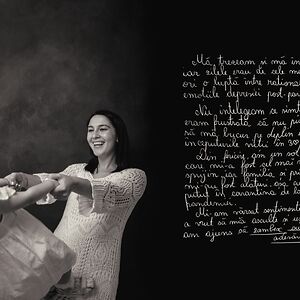 Mă, treceam și mă în
iar zilele erau de cele m
ori o luptă între rațion
emoțiile depresiei post-par
Nu înțelegeam ce simt
eram frustrată, să nu pu
să mă bucur pe deplin
începuturile vieții în 3
Din fericire, am un soț
care mi-a fost cel mai
sprijin, iar familia și pri
mi-au fost alături, așa cu
putut în carantina de la
pandemiei.
Mi-am vărsat sentimente
a vrut să mă asculte și u
am ajuns să zâmbesc cu
adevăr